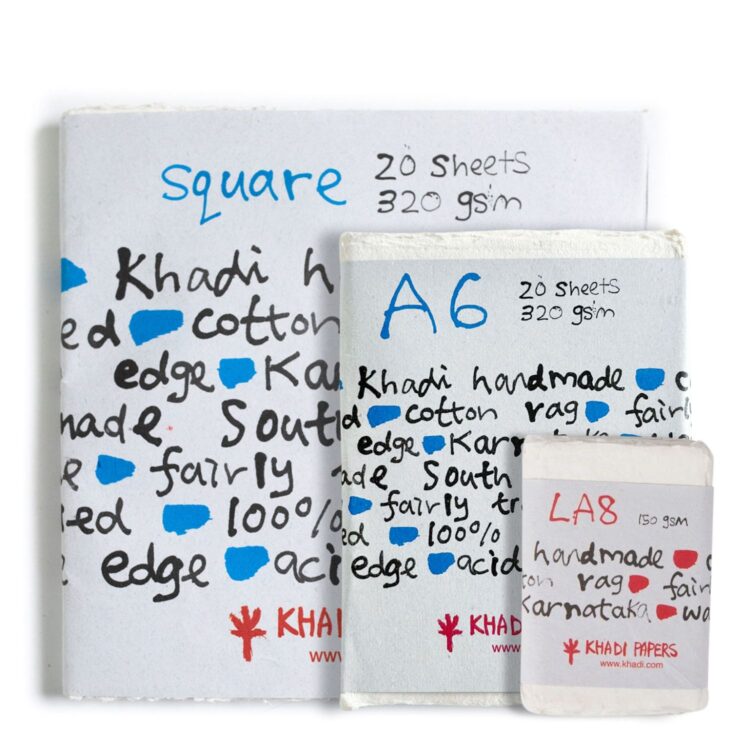 square
20 sheets
320 gsm
Khadi h
ed cotton
edge Kar
made South
e fairly
ed 100%
edge aci
KHADI
www.
A6
20 sheets
320 gsm
Khadi handmade c
d cotton rag fairly
edge Karnataka wa
ade South
fairly tr
ed 100%
edge acid
KHADI
www.
LA8
150 gsm
handmade c
ton rag fair
Karnataka wa
KHADI PAPERS
www.khadi.com